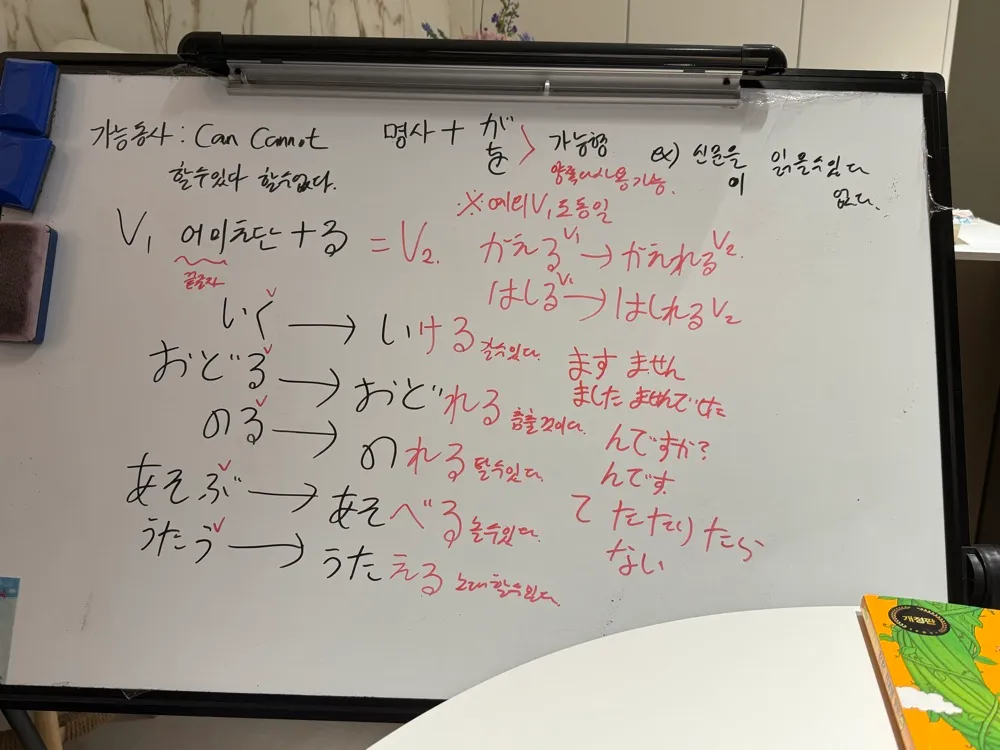 가능동사 : Can Cannot
할수있다 할수없다.
명사 + が
を
가능형
양쪽다사용가능.
ex) 신문을 읽을수있다
이 없다.
※예외V₁도동일
V₁ 어미え단+る = V₂.
끝글자
かえるV₁→かえれるV₂.
はしるV₁→はしれるV₂
いく → いける 갈수있다.
おどる → おどれる 춤출것이다.
のる → のれる 탈수있다.
あそぶ → あそべる 놀수있다.
うたう → うたえる 노래할수있다.
ます ません
ました ませんでした
んですか?
んです.
て た たり たら
ない
개정판